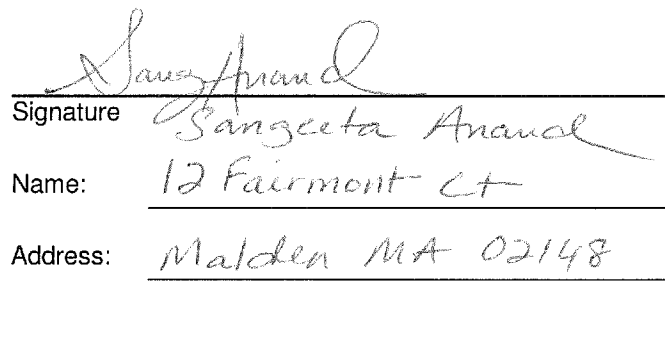 Sang Anand
Signature Sangeeta Anand
Name: 12 Fairmont Ct
Address: Malden MA 02148